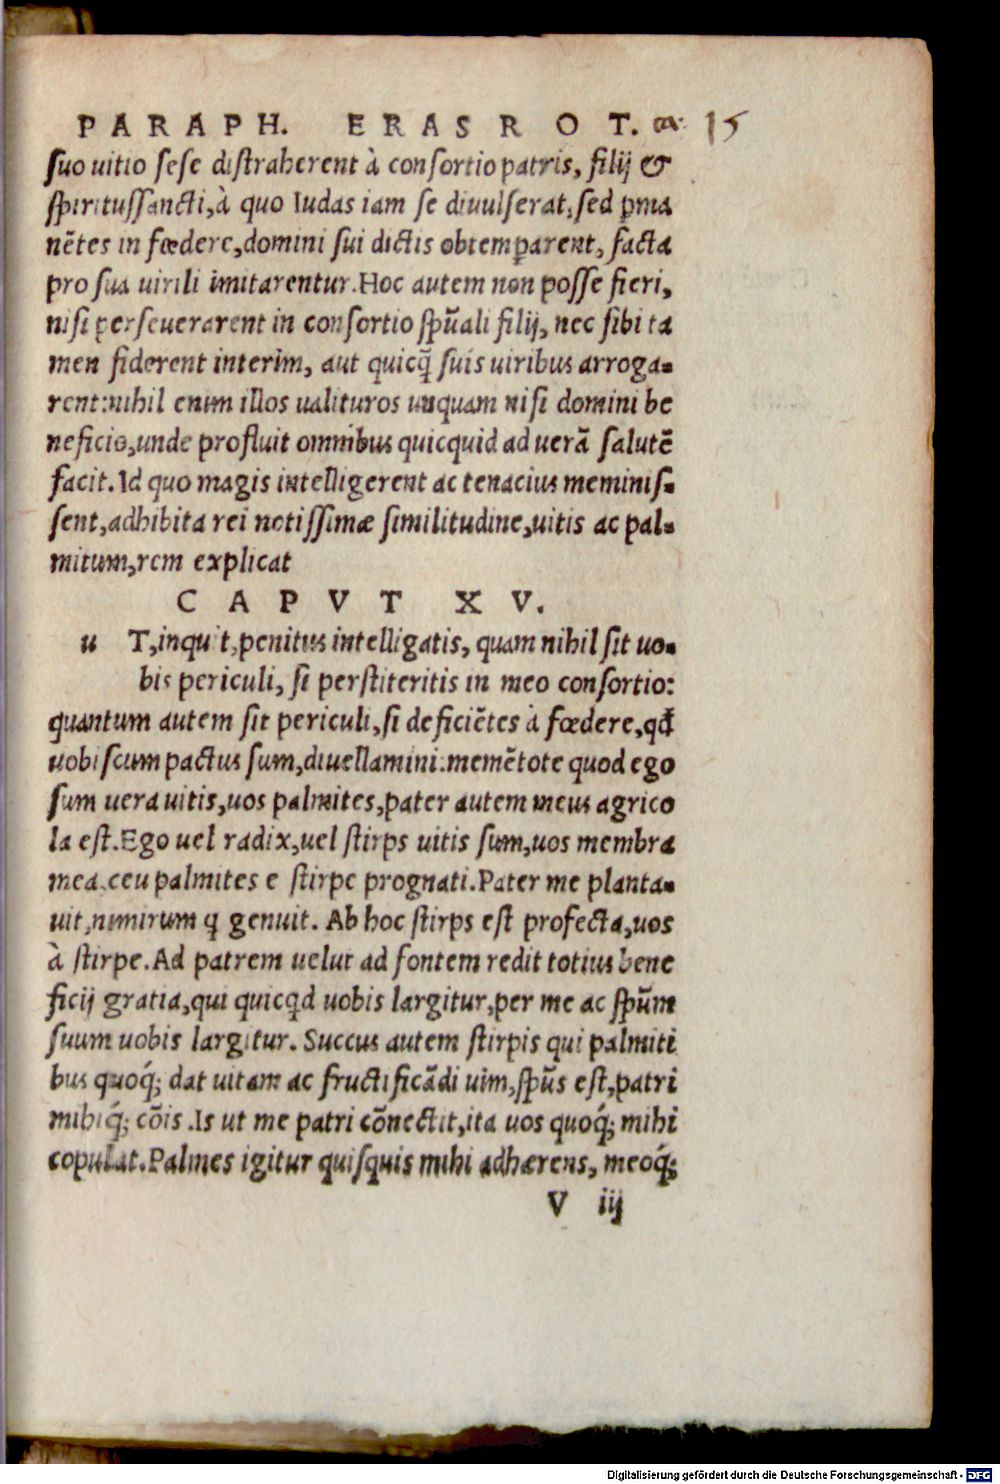 PARAPH. ERAS ROT. ca. 15
suo uitio sese distraherent à consortio patris, filij &
spiritussancti, à quo Iudas iam se diuulserat, sed ꝑma
nētes in fœdere, domini sui dictis obtemꝑarent, facta
pro sua uirili imitarentur. Hoc autem non posse fieri,
nisi perseuerarent in consortio sp̄uali filij, nec sibi ta
men fiderent interim, aut quicq̄ suis uiribus arroga-
rent: nihil enim illos ualituros unquam nisi domini be
neficio, unde profluit omnibus quicquid ad uerā salutē
facit. Id quo magis intelligerent ac tenacius meminis-
sent, adhibita rei notissimæ similitudine, uitis ac pal-
mitum, rem explicat
CAPVT XV.
u T, inquit, penitus intelligatis, quam nihil sit uo-
bis periculi, si perstiteritis in meo consortio:
quantum autem sit periculi, si deficiētes à fœdere, qđ
uobiscum pactus sum, diuellamini: memētote quod ego
sum uera uitis, uos palmites, pater autem meus agrico
la est. Ego uel radix, uel stirps uitis sum, uos membra
mea, ceu palmites e stirpe prognati. Pater me planta-
uit, nimirum ꝗ genuit. Ab hoc stirps est profecta, uos
à stirpe. Ad patrem uelut ad fontem redit totius bene
ficij gratia, qui quicꝗd uobis largitur, per me ac sp̄um
suum uobis largitur. Succus autem stirpis qui palmiti
bus quoq́; dat uitam ac fructificādi uim, sp̄us est, patri
mihiq́; cōis. Is ut me patri cōnectit, ita uos quoq́; mihi
copulat. Palmes igitur quisquis mihi adhærens, meoq́;
V iij
Digitalisierung gefördert durch die Deutsche Forschungsgemeinschaft - DFG